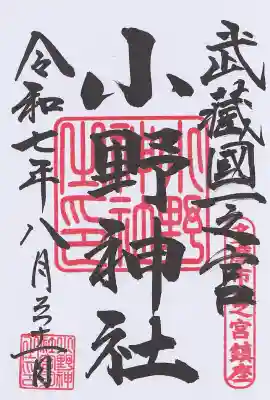 武藏國一之宮
多摩市一之宮鎮座
小野神社
小野神社之印
令和七年八月